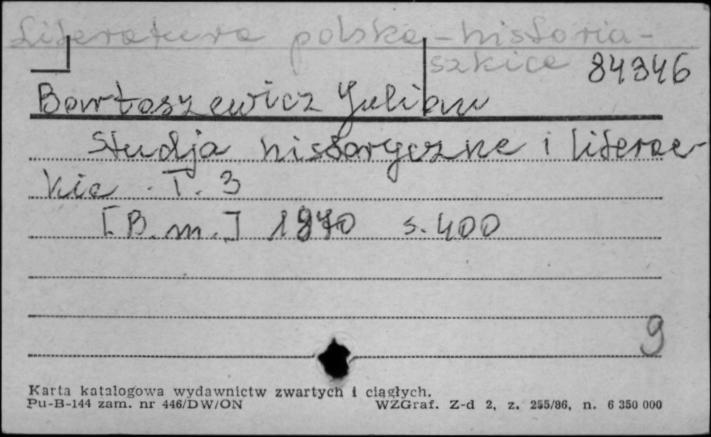 Literatura polska - historia -
szkice 84346
Bartoszewicz Julian
Studja historyczne i literac-
kie. T. 3
[B.m.] 1970 s. 400
9
Karta katalogowa wydawnictw zwartych i ciągłych.
Pu-B-144 zam. nr 446/DW/ON WZGraf. Z-d 2, z. 255/86, n. 6 350 000